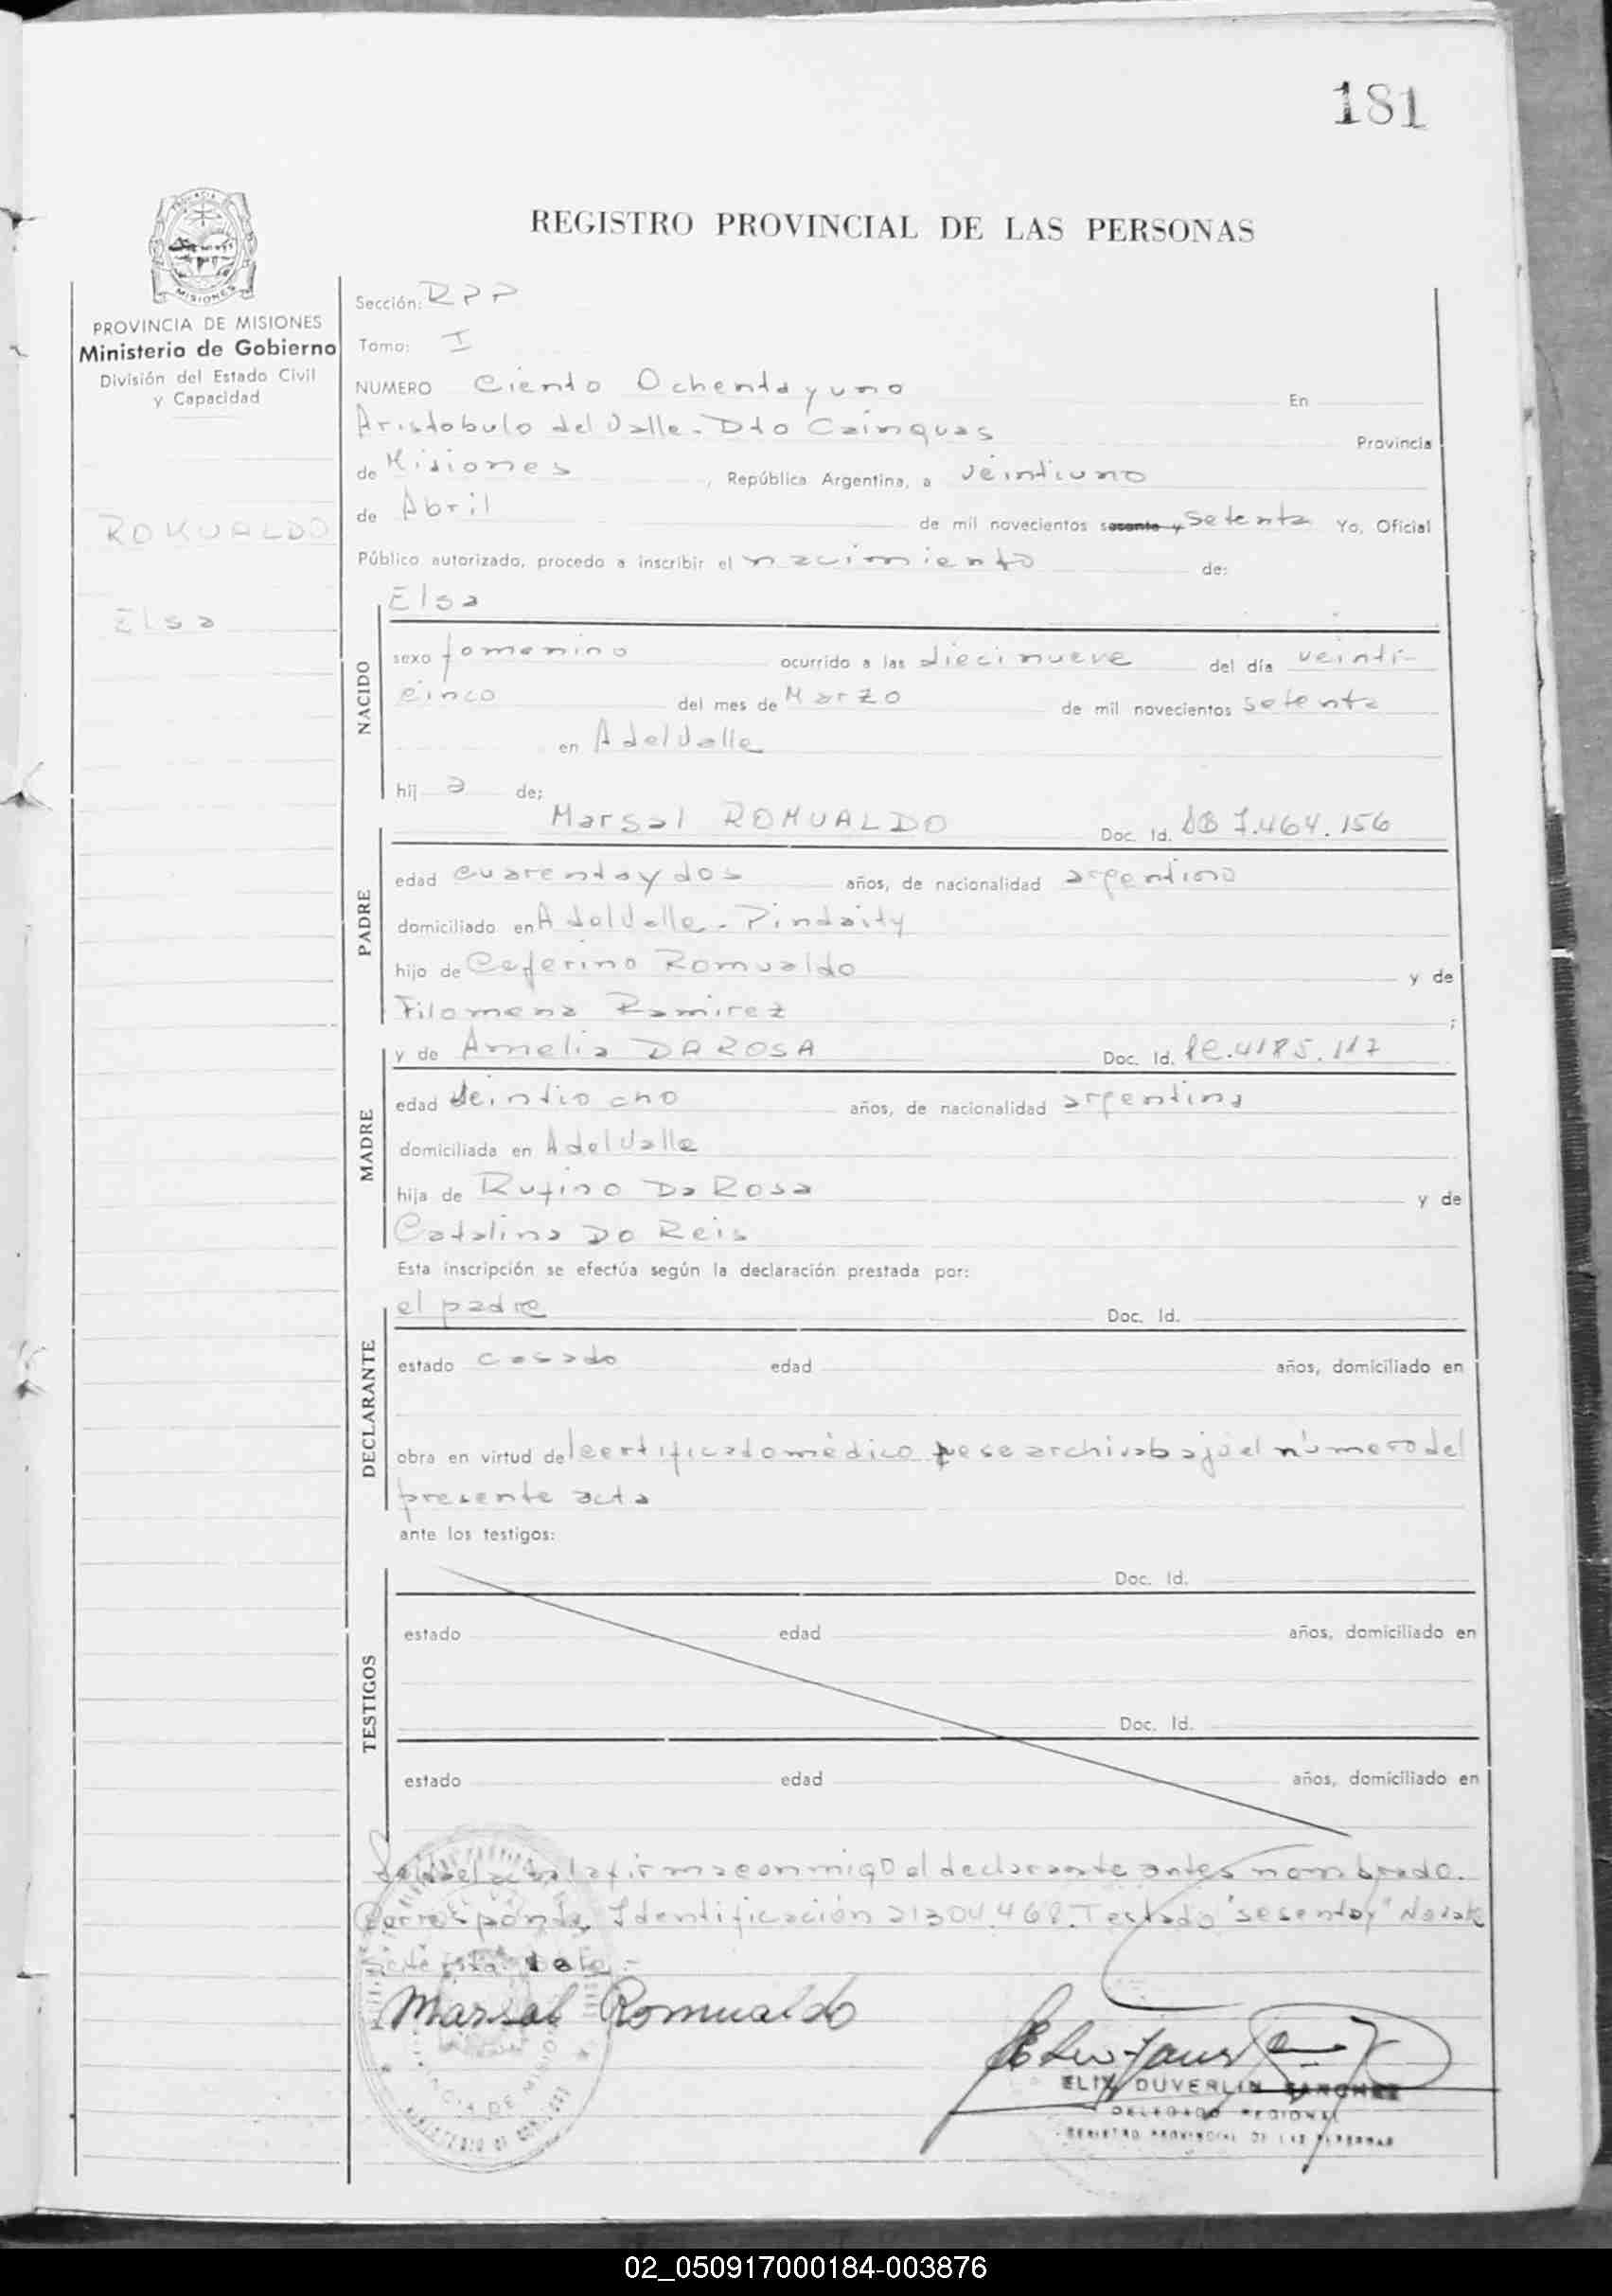 181
REGISTRO PROVINCIAL DE LAS PERSONAS
PROVINCIA DE MISIONES
Ministerio de Gobierno
División del Estado Civil
y Capacidad
ROMUALDO
Elsa
Sección: RPP
Tomo: I
NUMERO Ciento Ochenta y uno En
Aristobulo del Valle - Dto Cainguas Provincia
de Misiones, República Argentina, a veintiuno
de Abril de mil novecientos sesenta y setenta Yo, Oficial
Público autorizado, procedo a inscribir el nacimiento de:
NACIDO
Elsa
sexo femenino ocurrido a las diecinueve del día veinti-
cinco del mes de Marzo de mil novecientos setenta
en A del Valle
hij a de:
PADRE
Marsal ROMUALDO Doc. Id. 7.464.156
edad cuarenta y dos años, de nacionalidad argentino
domiciliado en A del Valle - Pindaity
hijo de Ceferino Romualdo y de
Filomena Ramirez ;
MADRE
y de Amelia DA ROSA Doc. Id. 4185.117
edad veintiocho años, de nacionalidad argentina
domiciliada en A del Valle
hija de Rufino Da Rosa y de
Catalina Do Reis
Esta inscripción se efectúa según la declaración prestada por:
DECLARANTE
el padre Doc. Id.
estado casado edad años, domiciliado en
obra en virtud del certificado médico que se archiva bajo el número del
presente acta
ante los testigos:
TESTIGOS
Doc. Id.
estado edad años, domiciliado en
Doc. Id.
estado edad años, domiciliado en
la firma conmigo el declarante antes nombrado.
Corresponde Identificación 21304.468. Testado "sesenta y" No vale
Vale.-
Marsal Romualdo
ELIX DUVERLIN SANCHEZ
DELEGADO REGIONAL
REGISTRO PROVINCIAL DE LAS PERSONAS
02_050917000184-003876